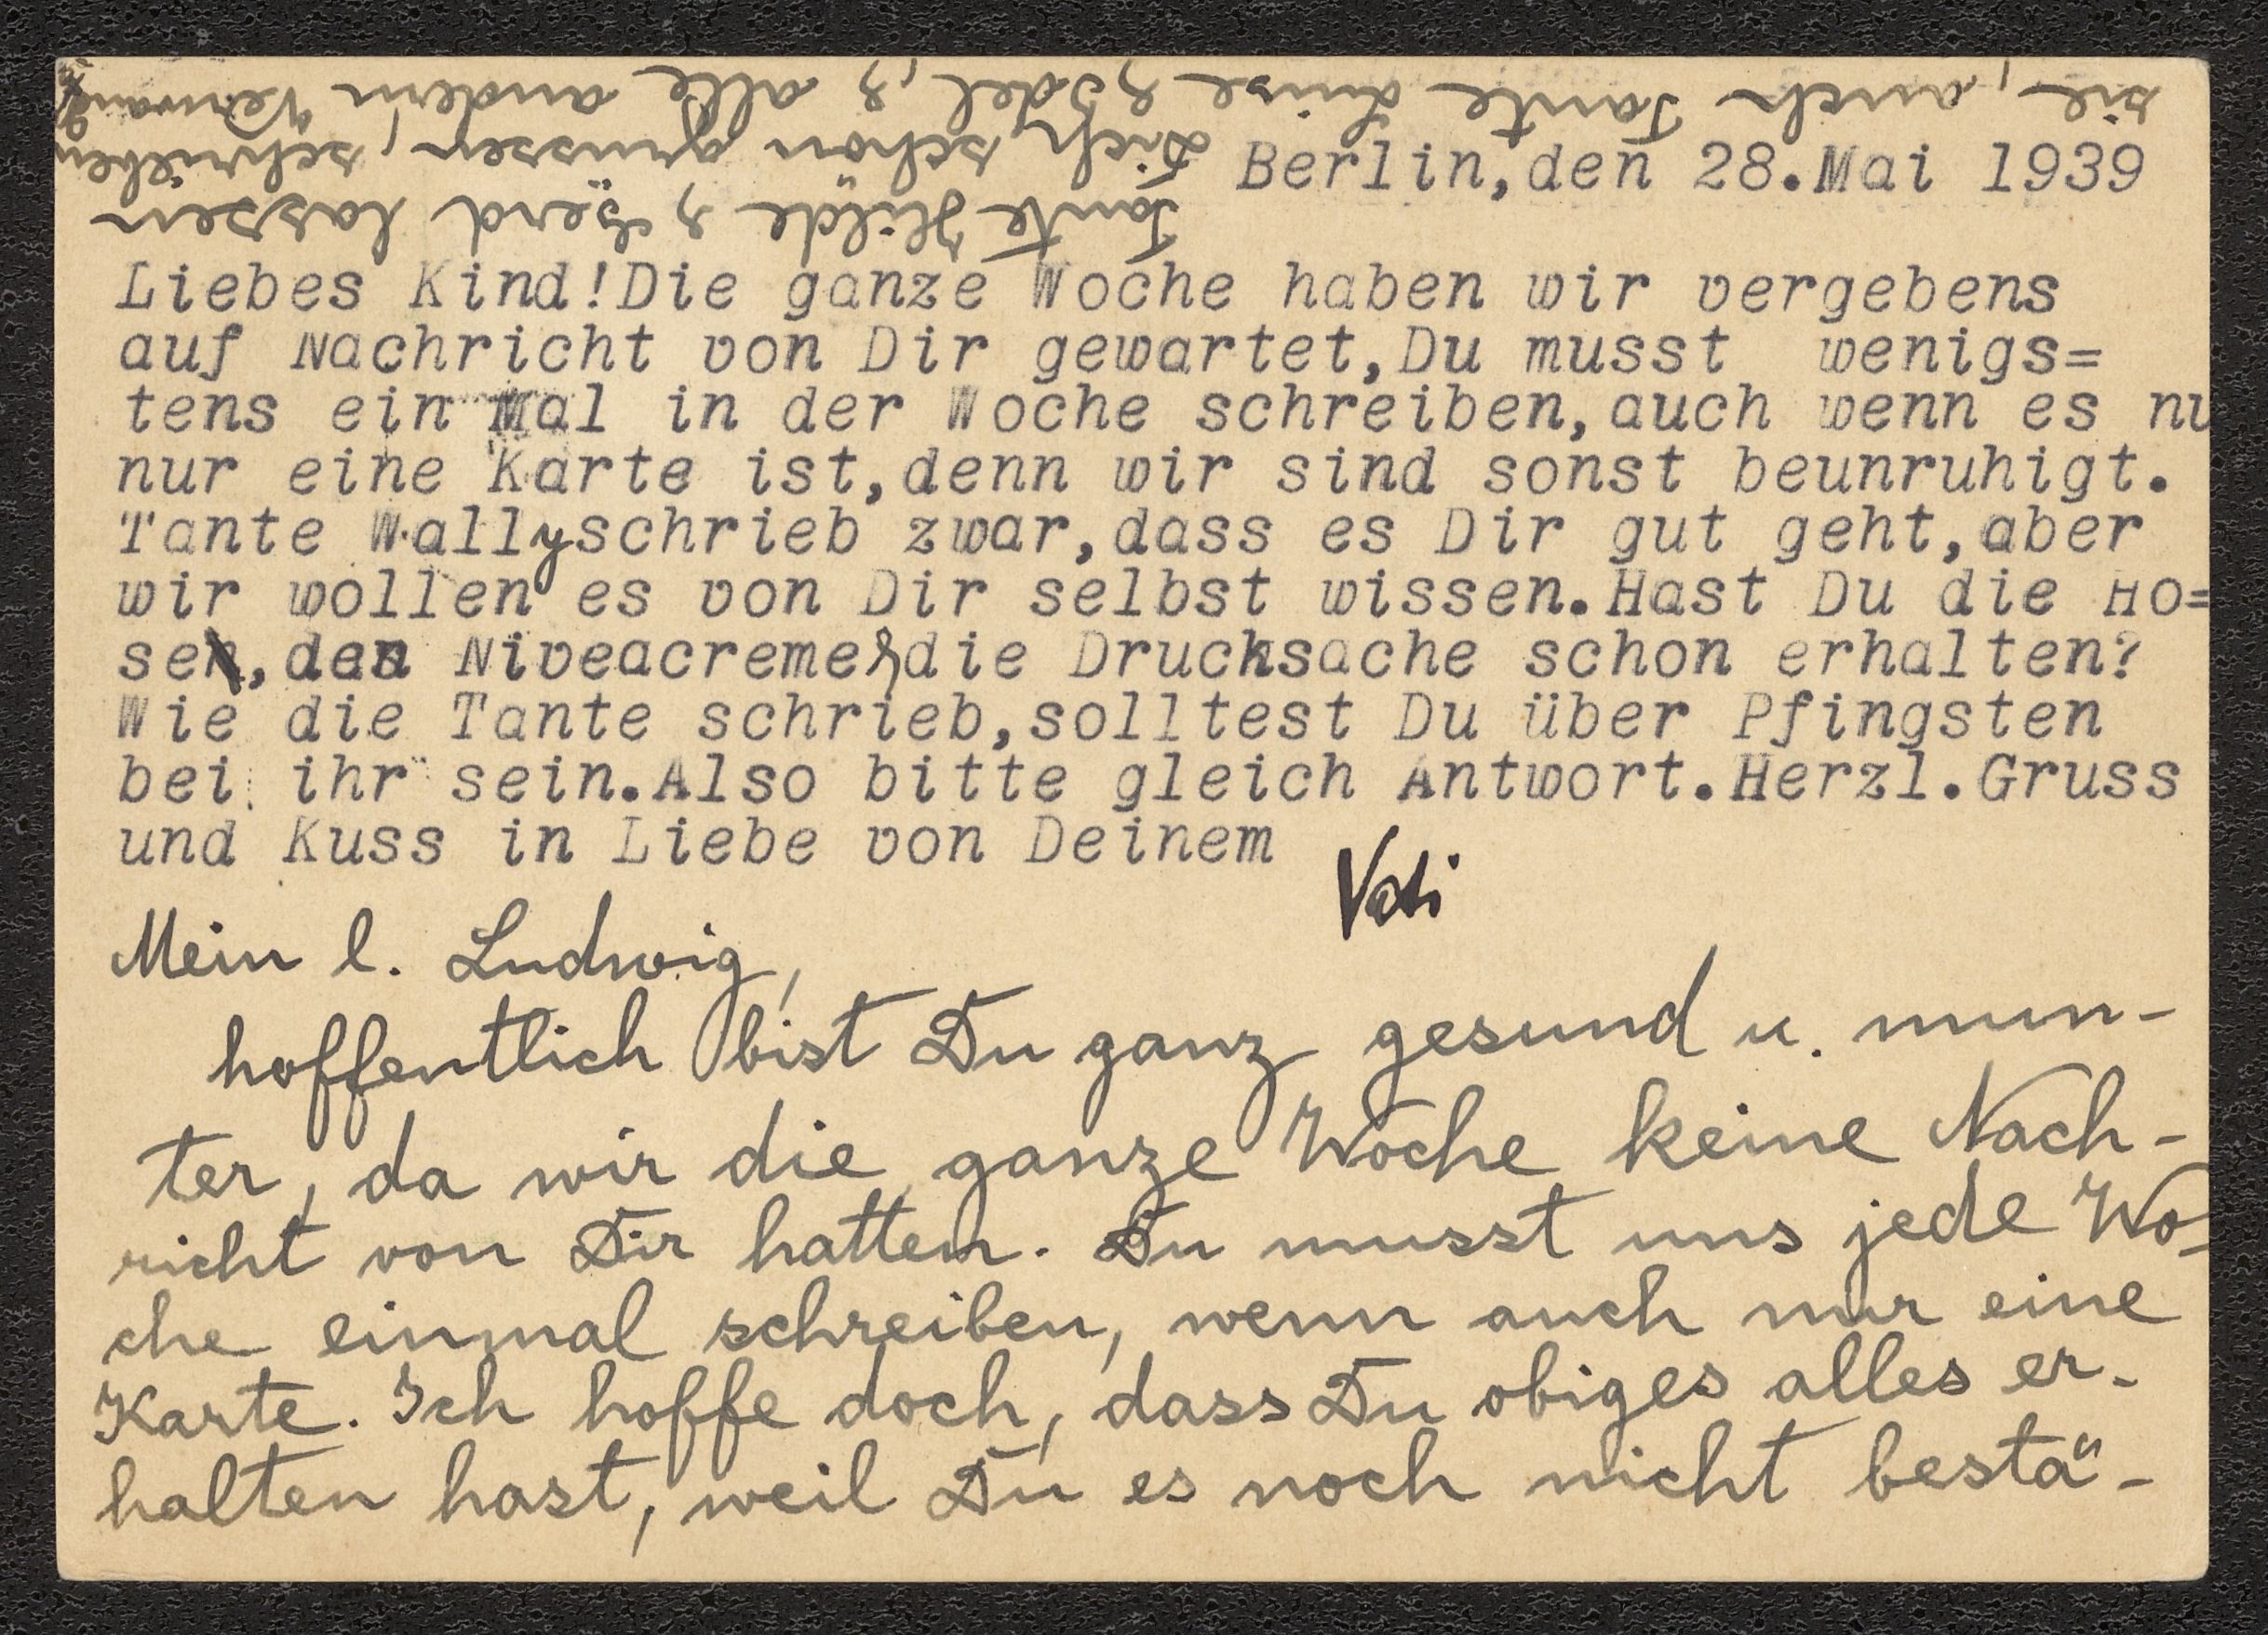 Berlin,den 28.Mai 1939
Liebes Kind!Die ganze Woche haben wir vergebens
auf Nachricht von Dir gewartet,Du musst wenigs=
tens ein Mal in der Woche schreiben,auch wenn es nu
nur eine Karte ist,denn wir sind sonst beunruhigt.
Tante Wally schrieb zwar,dass es Dir gut geht,aber
wir wollen es von Dir selbst wissen.Hast Du die Ho=
se,den Niveacreme & die Drucksache schon erhalten?
Wie die Tante schrieb,solltest Du über Pfingsten
bei ihr sein.Also bitte gleich Antwort.Herzl.Gruss
und Kuss in Liebe von Deinem
Vati
Mein l. Ludwig,
hoffentlich bist Du ganz gesund u. mun-
ter, da wir die ganze Woche keine Nach-
richt von Dir hatten. Du musst uns jede Wo-
che einmal schreiben, wenn auch nur eine
Karte. Ich hoffe doch, dass Du obiges alles er-
halten hast, weil Du es noch nicht bestä-
Tante Hilde & Gerd lassen
Dich schön grüssen, schrieben
sie, auch Tante Luise & & alle andern